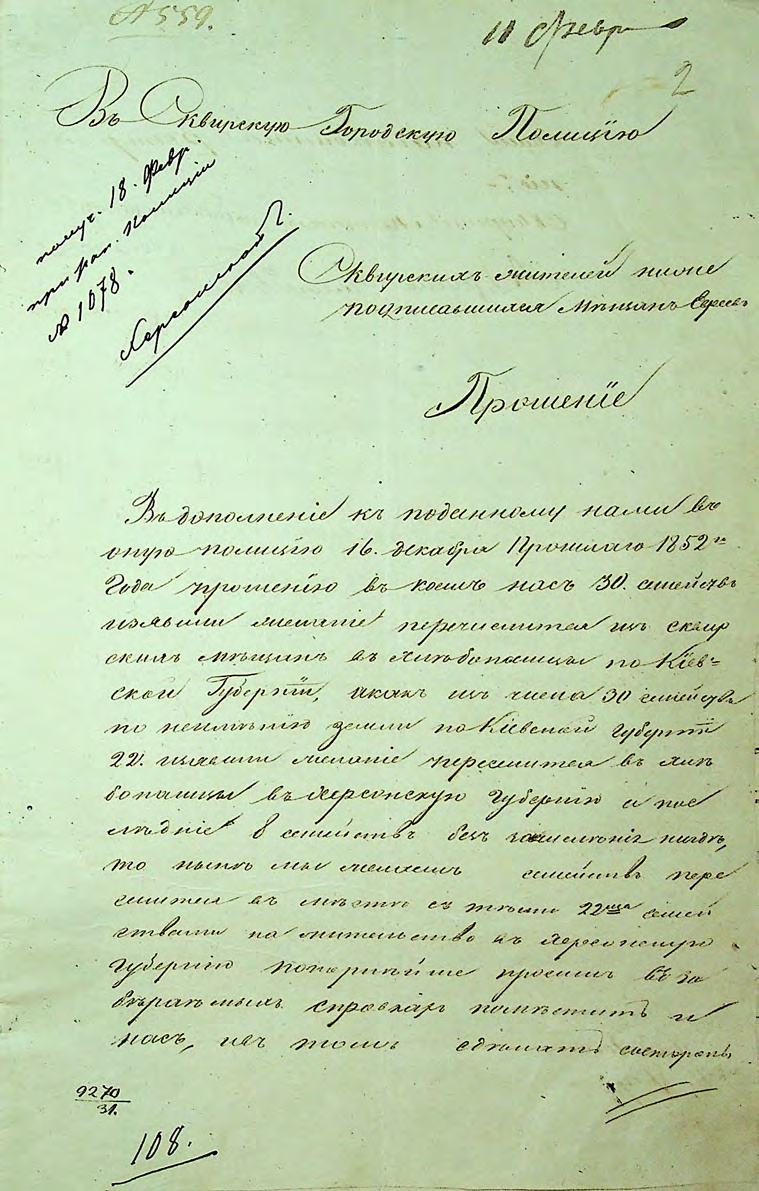 № 559.
11 Февр
2
Въ Сквирскую Городскую Полицію
получ. 18. Февр.
при рап. Полиціи
№ 1078.
Херсонской Г.
Сквирскихъ жителей ниже
подписавшихся Мѣщанъ Евреевъ
Прошеніе
Въ дополненіе къ поданному нами въ
оную полицію 16. декабря Прошлаго 1852го
Года прошенію въ коемъ насъ 30. семействъ
изявили желаніе перечислится изъ сквир
скихъ мѣщанъ въ хлѣбопашцы по Кіев-
ской Губерніи, акакъ изъ числа 30 семействъ
по неимѣнію земли по Кіевской губерніи
22. изявили желаніе переселится въ хлѣ
бопашцы въ Херсонскую Губернію а пос
лѣдніе 8 семействъ безъ нигдѣ,
то нынѣ мы желаемъ семействъ пере
селится въ мѣстѣ съ тѣми 22мя семей
ствами на жительство въ Херсонскую
Губернію покорнѣйше просимъ въ за
бираемыхъ справкахъ помѣстить и
насъ, ивъ томъ сдѣлать состороны
9270
31.
108.